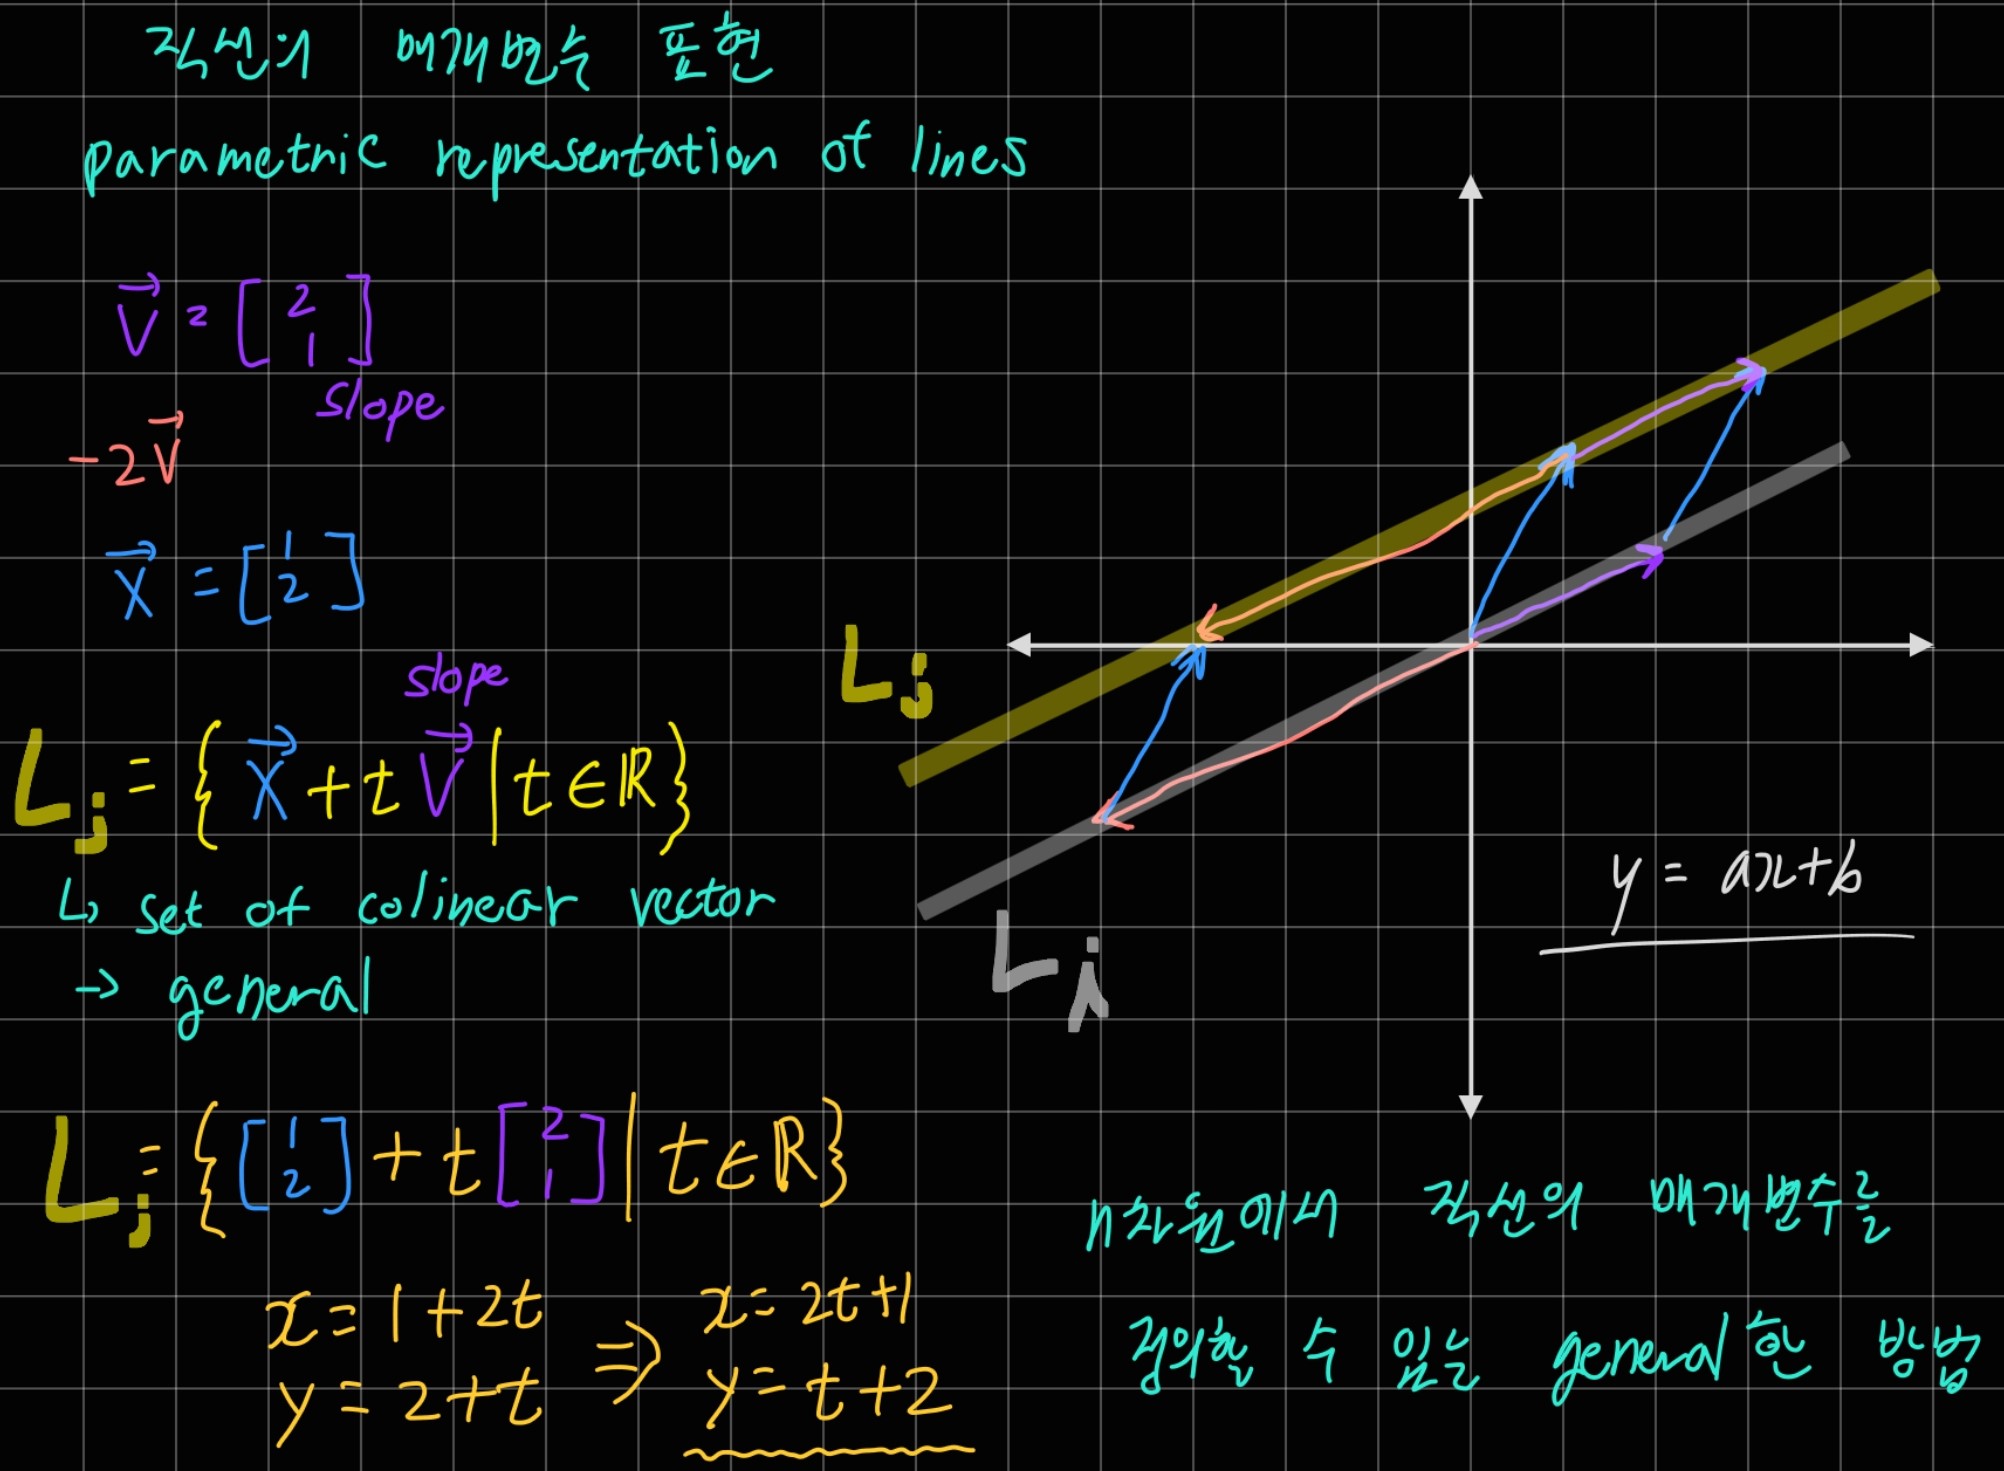 직선의 매개변수 표현
parametric representation of lines
V⃗ = [2 1]
slope
-2V⃗
X⃗ = [1 2]
slope
Lj = { X⃗ + t V⃗ | t ∈ ℝ }
↳ set of colinear vector
→ general
Lj = { [1 2] + t [2 1] | t ∈ ℝ }
x = 1 + 2t ⇒ x = 2t + 1
y = 2 + t y = t + 2
Lj
Li
y = ax + b
n차원에서 직선의 매개변수를
정의할 수 있는 general한 방법